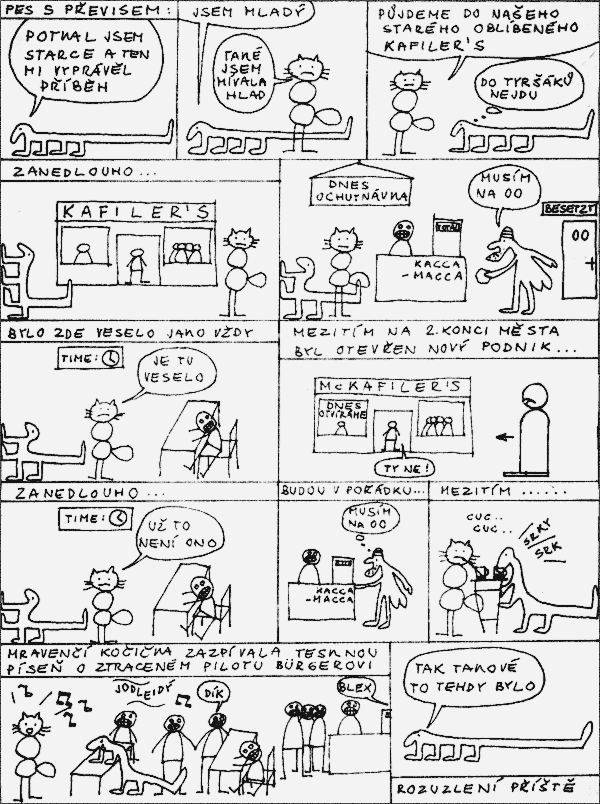 PES S PŘEVISEM:
POTKAL JSEM
STARCE A TEN
MI VYPRÁVĚL
PŘÍBĚH
JSEM HLADÝ
TAKÉ
JSEM
MÍVALA
HLAD
PŮJDEME DO NAŠEHO
STARÉHO OBLÍBENÉHO
KAFILER'S
DO TYRŠÁKŮ
NEJDU
ZANEDLOUHO...
KAFILER'S
DNES
OCHUTNÁVKA
KACCA
-MACCA
MUSÍM
NA OO
BESETZT
OO
BYLO ZDE VESELO JAKO VŽDY
TIME:
JE TU
VESELO
MEZITÍM NA 2. KONCI MĚSTA
BYL OTEVŘEN NOVÝ PODNIK...
McKAFILER'S
DNES
OTVÍRÁME
TY NE!
ZANEDLOUHO...
TIME:
UŽ TO
NENÍ ONO
BUDOU V POŘÁDKU...
MUSÍM
NA OO
KACCA
-MACCA
MEZITÍM ......
CUC..
CUC..
SRKY
SRK
MRAVENČÍ KOČIČKA ZAZPÍVALA TESKNOU
PÍSEŇ O ZTRACENÉM PILOTU BÜRGEROVI
JODLEIDÝ
DÍK
BLEX
TAK TAKOVÉ
TO TEHDY BYLO
ROZUZLENÍ PŘÍŠTĚ